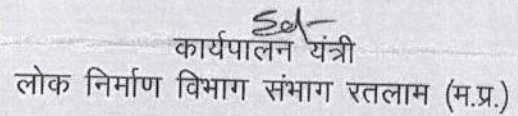 Sd-
कार्यपालन यंत्री
लोक निर्माण विभाग संभाग रतलाम (म.प्र.)